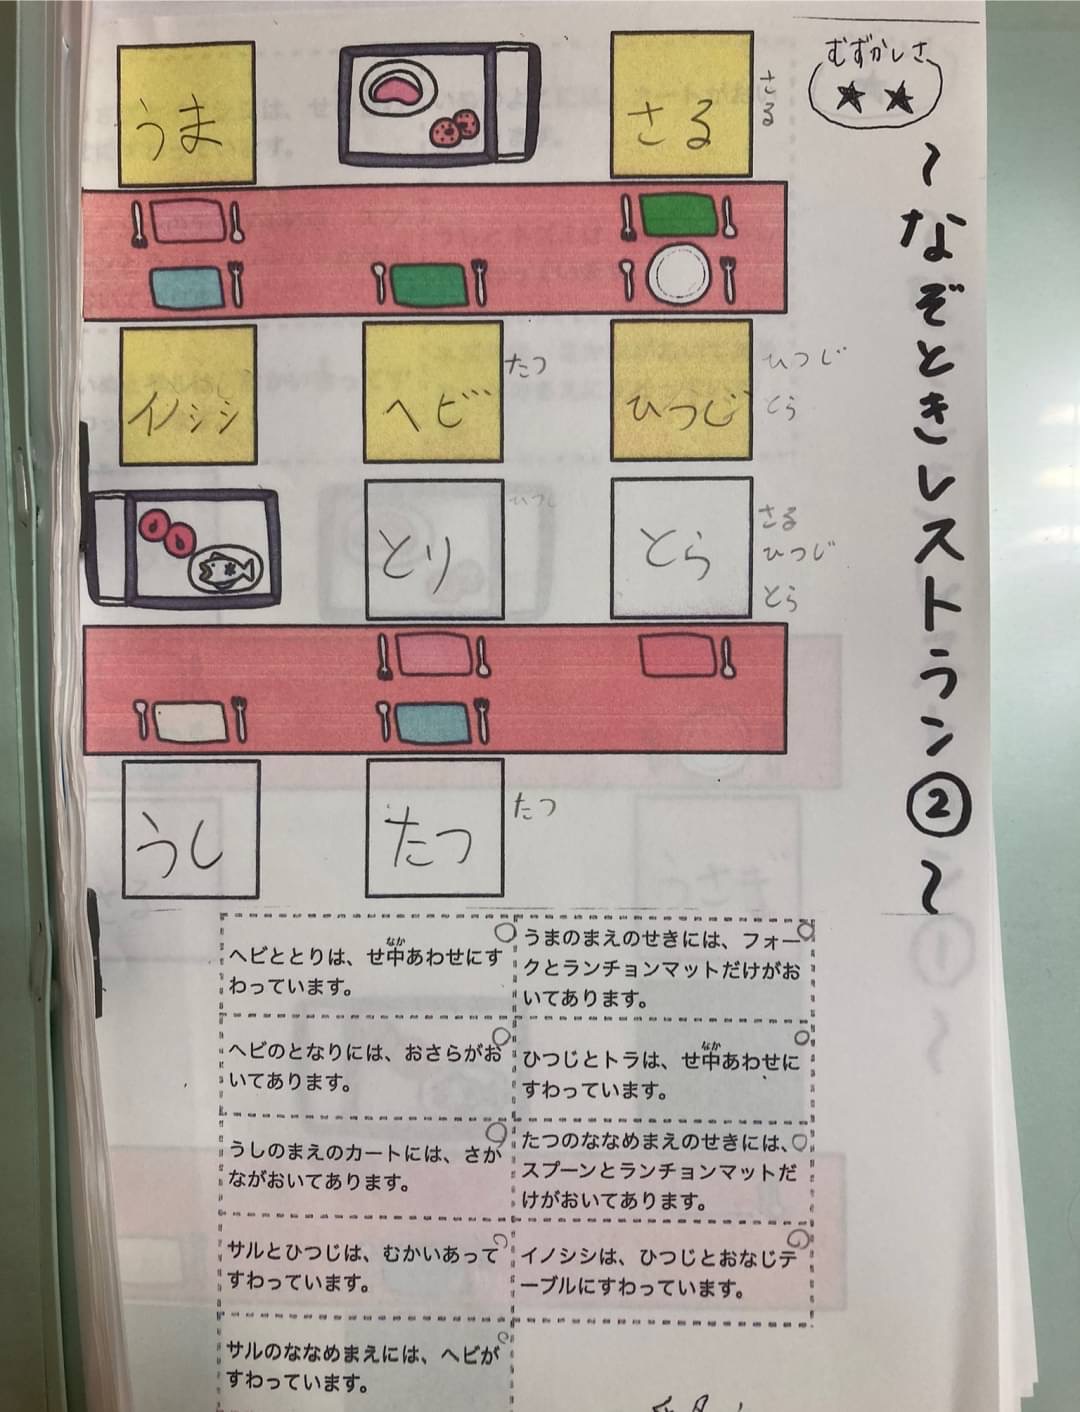 むずかしさ
★★
～なぞときレストラン②～
うま
さる
さる
イノシシ
ヘビ
たつ
ひつじ
ひつじ
とら
とり
とら
さる
ひつじ
とら
うし
たつ
たつ
ヘビととりは、せ中(なか)あわせにす
わっています。
うまのまえのせきには、フォー
クとランチョンマットだけがお
いてあります。
ヘビのとなりには、おさらがお
いてあります。
ひつじとトラは、せ中(なか)あわせに
すわっています。
うしのまえのカートには、さか
ながおいてあります。
たつのななめまえのせきには、
スプーンとランチョンマットだ
けがおいてあります。
サルとひつじは、むかいあって
すわっています。
イノシシは、ひつじとおなじテ
ーブルにすわっています。
サルのななめまえには、ヘビが
すわっています。